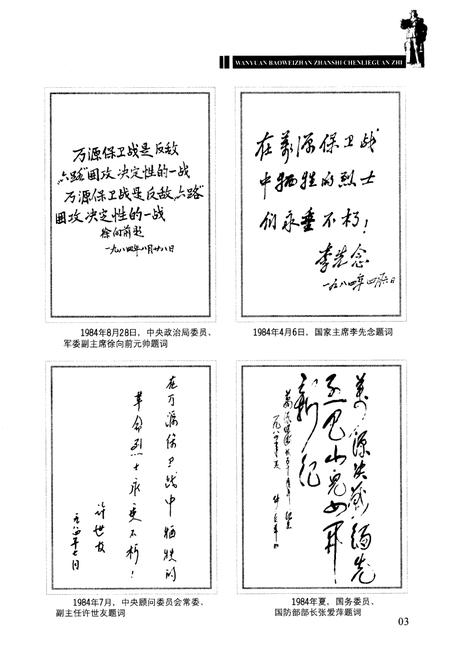 WANYUAN BAOWEIZHAN ZHANSHI CHENLIEGUAN ZHI
万源保卫战是反敌
“六路”围攻决定性的一战
万源保卫战是反敌“六路”
围攻决定性的一战
徐向前题
一九八四年八月廿八日
1984年8月28日，中央政治局委员、
军委副主席徐向前元帅题词
在万源保卫战
中牺牲的烈士
们永垂不朽！
李先念
一九八四年四月六日
1984年4月6日，国家主席李先念题词
在万源保卫战中牺牲的
革命烈士永垂不朽！
许世友
一九八四年七月
1984年7月，中央顾问委员会常委、
副主任许世友题词
万源决战
1984年夏，国务委员、
国防部部长张爱萍题词
03